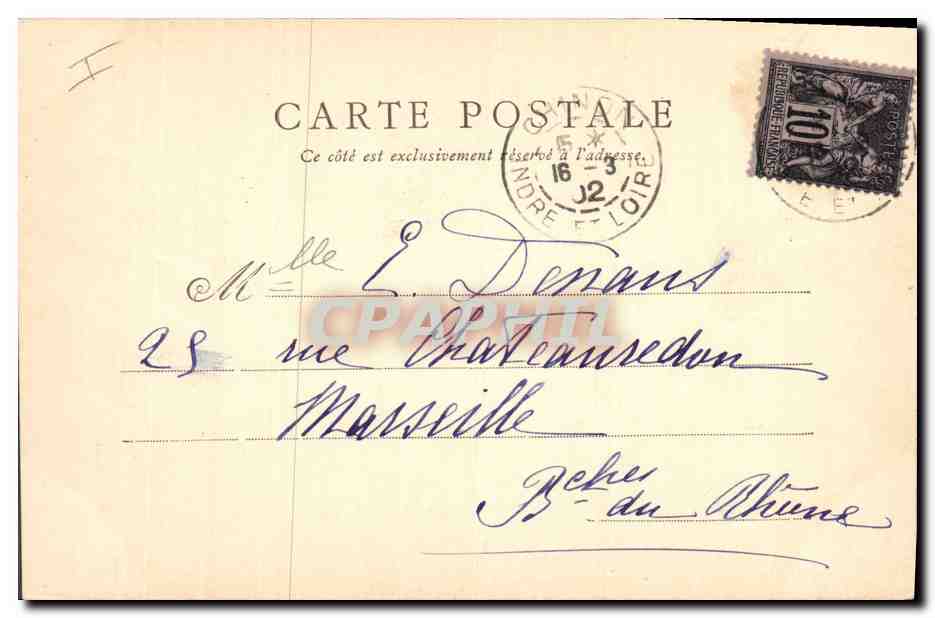 I
CARTE POSTALE
Ce côté est exclusivement réservé à l'adresse.
CHINON
5 *
16 - 3
02
INDRE ET LOIRE
POSTES
10
REPUBLIQUE FRANÇAISE
E E
Mlle E. Denans
CPAPHIL
25 rue Chateauredon
Marseille
Bches du Rhône